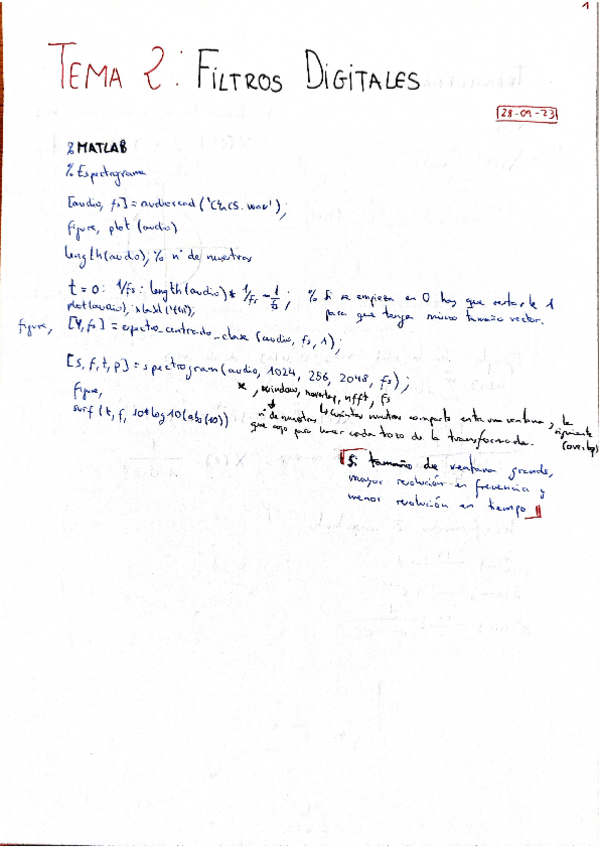 1
TEMA 2: FILTROS DIGITALES
28-09-23
% MATLAB
% Espectrograma
[audio, fs] = audioread('Chcs.wav');
figure, plot(audio)
length(audio), % nº de muestras
t = 0: 1/fs: length(audio) * 1/fs - 1/fs; % Si se empieza en 0 hay que restarle 1
plot(audio), xlabel('t(s)'); para que tenga mismo tamaño vector.
figure, [Y, fs] = espectro_centrado_clase (audio, fs, 1);
[s, f, t, p] = spectrogram(audio, 1024, 256, 2048, fs);
x, window, noverlap, nfft, fs
figure,
surf(t, f, 10*log10(abs(
nº de muestras cuántas muestras comparte entre una ventana y la siguiente
que cojo para hacer cada trozo de la transformada. (overlap)
Si tamaño de ventana grande,
mayor resolución en frecuencia y
menos resolución en tiempo